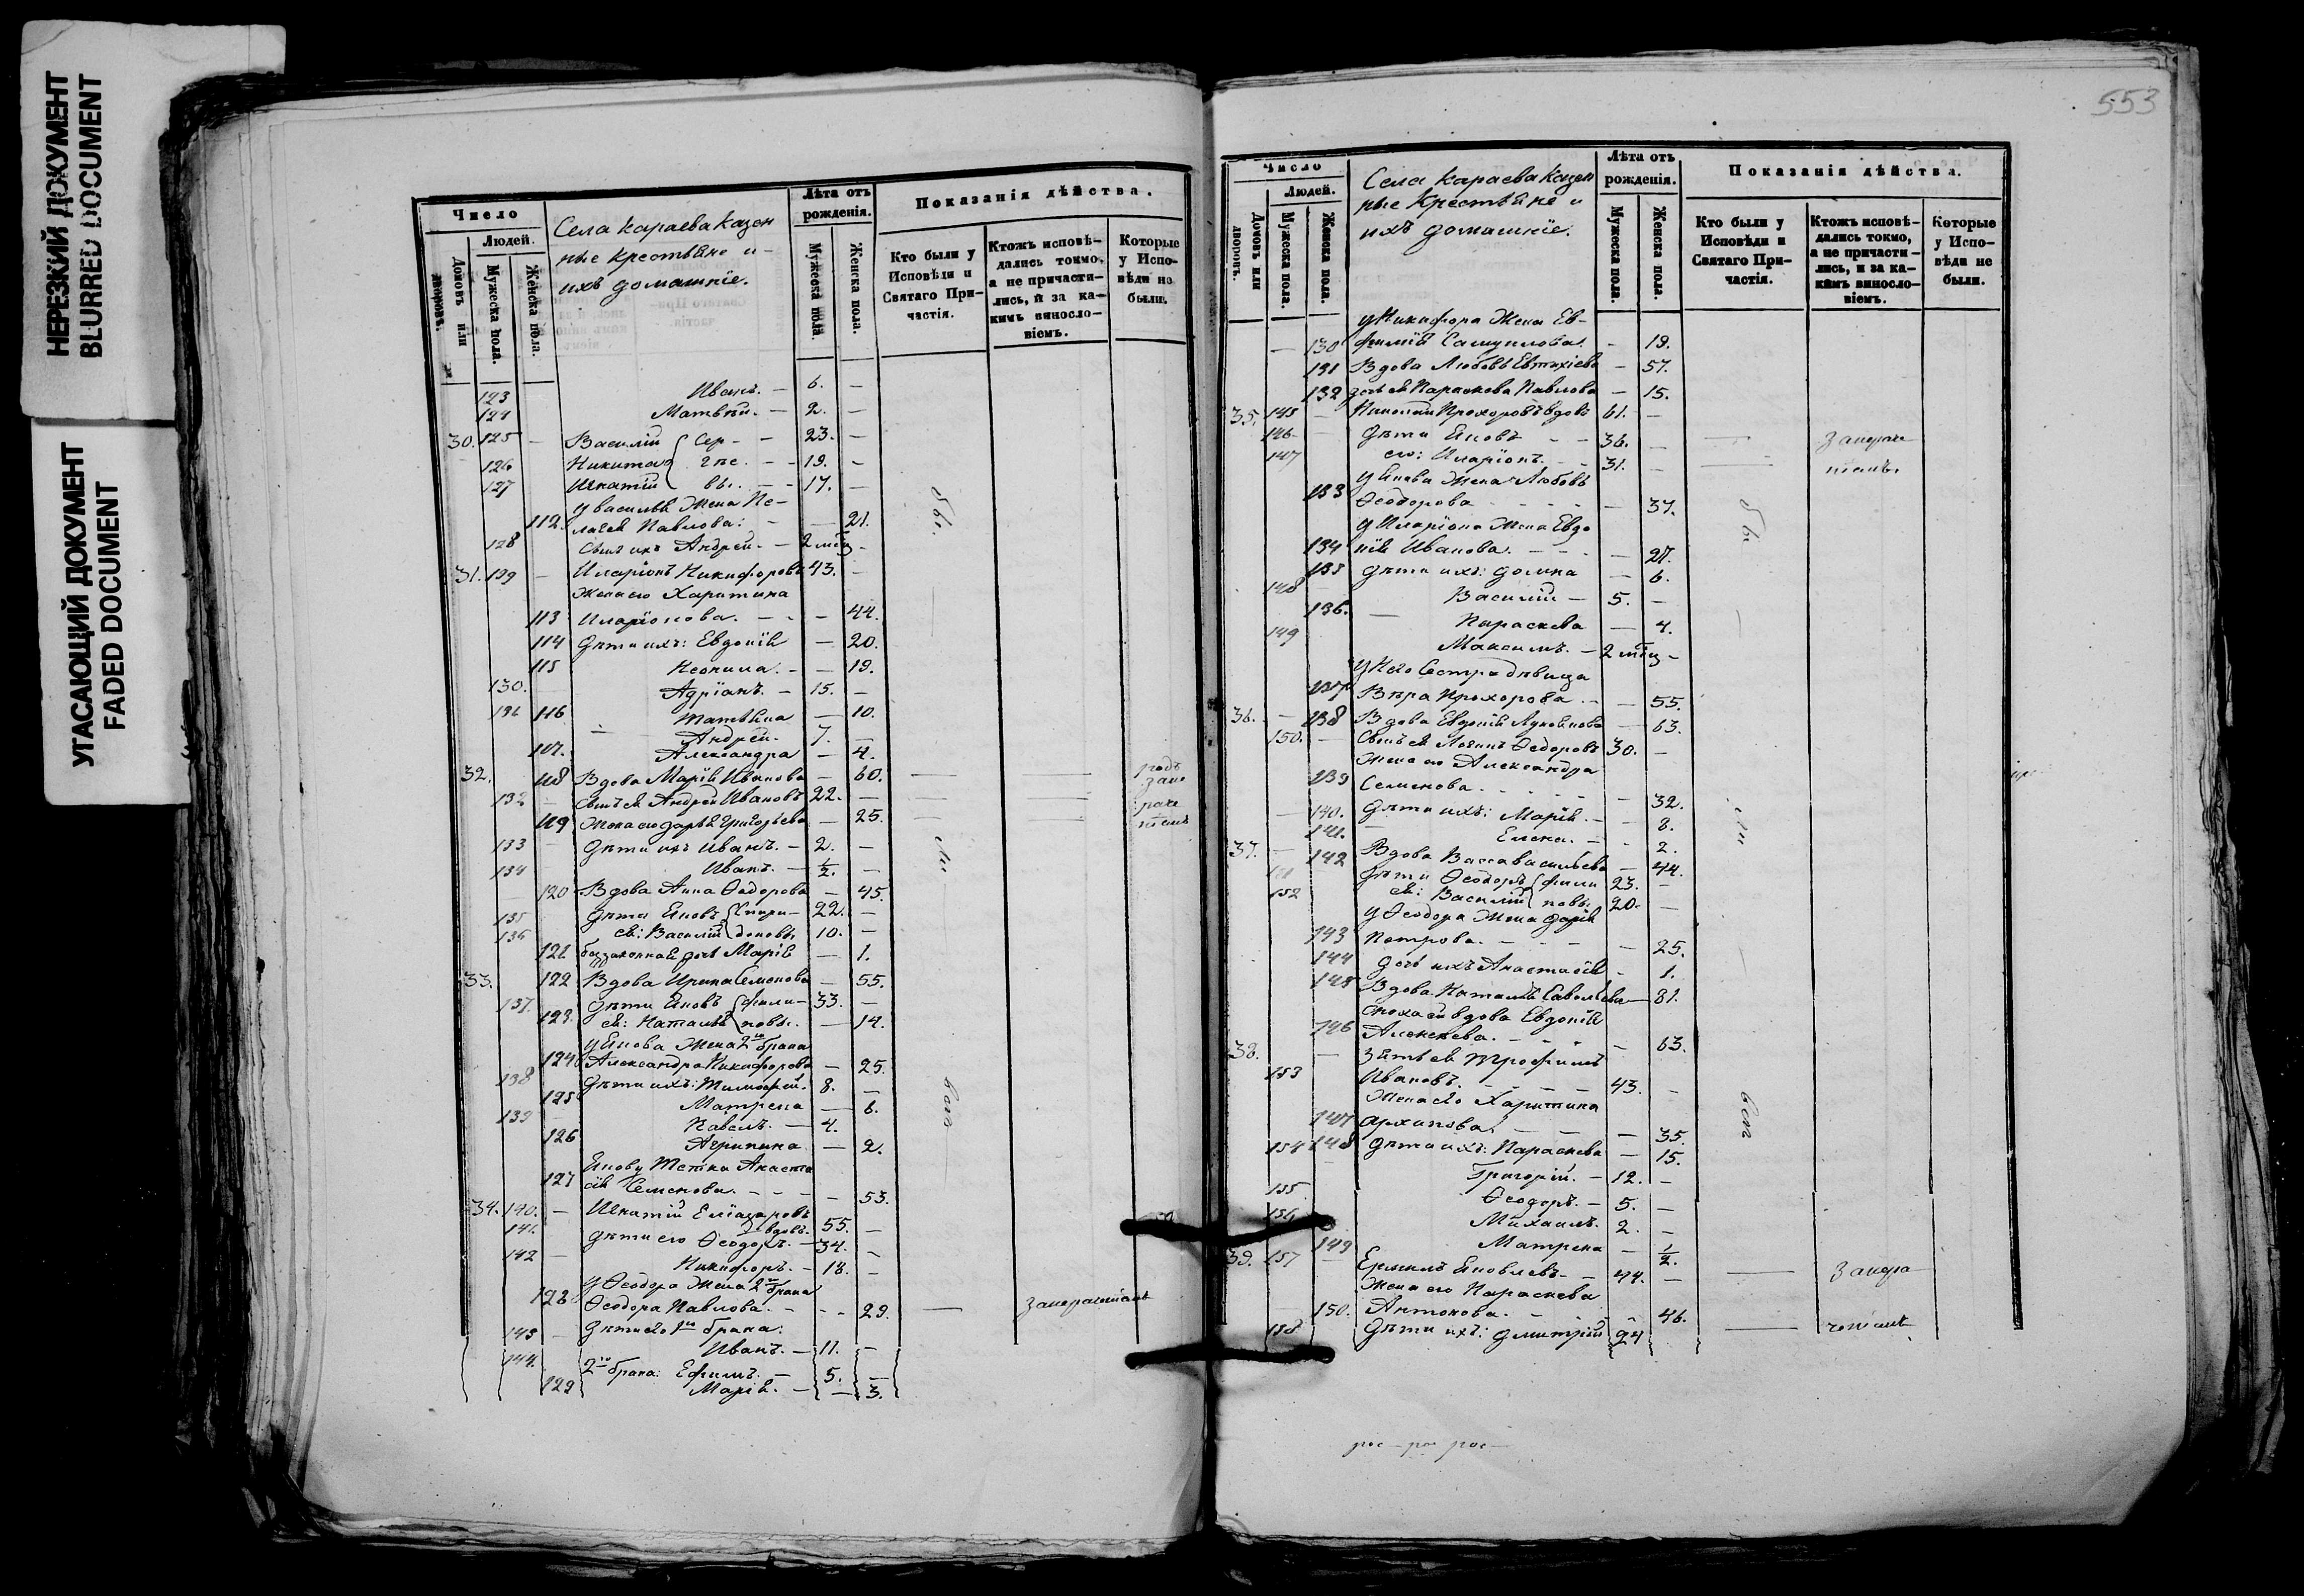 НЕРЕЗКИЙ ДОКУМЕНТ
BLURRED DOCUMENT
УГАСАЮЩИЙ ДОКУМЕНТ
FADED DOCUMENT
Число
Людей.
Домовъ или дворовъ.
Мужеска пола.
Женска пола.
Села Караева Казен
ные крестьяне и
ихъ домашніе.
Лѣта отъ рожденія.
Мужеска пола.
Женска пола.
Показанія дѣйства.
Кто были у Исповѣди и Святаго Причастія.
Ктожъ исповѣдались токмо, а не причастились, и за какимъ винословіемъ.
Которые у Исповѣди не были.
123 Иванъ. — 6. —
124 Матвѣй. — 2. —
30. 125 — Василій Сер- — 23. —
126 Никита гѣе. — 19. —
127 Игнатій вы. — 17. —
у Василья Жена Пе-
112. лагея Павлова: — — 21.
128 Сынъ ихъ Андрей. — 2 мѣц —
31. 129 — Иларіонъ Никифоровъ 43. —
Жена его Харитина
113 Иларіонова. — — 44.
114 Дѣти ихъ: Евдокія — 20.
115 Неонила. — — 19.
130. Адріанъ. — 15. —
116 Татьяна — 10.
131 Андрей. 7. —
117. Александра — 4.
32. 118 Вдова Марія Иванова — 60.
132 — Сынъ ея Андрей Ивановъ 22. —
119 Жена его Дарья Григорьева — 25.
133 Дѣти ихъ Иванъ. — 2. —
134 Иванъ. — 1/2. —
120 Вдова Анна Ѳедорова — 45.
135 Дѣти Яковъ Спири- 22. —
136 ея: Василій доновы 10. —
121 беззаконная дочь Марія — 1.
33. 122 Вдова Ирина Семенова — 55.
137. Дѣти Яковъ фили- 33. —
123 ея: Наталья повы. — 14.
у Якова Жена 2го брака
124 Александра Никифорова — 25.
138 Дѣти ихъ: Тимофей. 8. —
125 Матрена — 6.
139 Павелъ. — 4.
126 Агрипина — 2.
Якову Тетка Анаста
127 сія Семенова. — — 53.
34. 140. — Игнатій Еліазаровъ
вдовъ. 55. —
141. Дѣти его Ѳеодоръ. — 34. —
142 — Никифоръ. — 18. —
у Ѳеодора Жена 2го брака
128 Ѳеодора Павлова. — — 29. —
143 — Дѣти его 1го брака:
Иванъ. — 11. —
144. 2го брака: Ефимъ. — 5. —
129 Марія. — — 3.
бы
ли
вси
553
Число
Людей.
Домовъ или дворовъ.
Мужеска пола.
Женска пола.
Села Караева Казен
ные Крестьяне и
ихъ домашніе.
Лѣта отъ рожденія.
Мужеска пола.
Женска пола.
Показанія дѣйства.
Кто были у Исповѣди и Святаго Причастія.
Ктожъ исповѣдались токмо, а не причастились, и за какимъ винословіемъ.
Которые у Исповѣди не были.
у Никифора Жена Ев-
130 фимія Самуилова. — 19.
131 Вдова Любовь Евтихіева — 57.
132 дочь ея Параскева Павлова — 15.
35. 145 — Николай Прохоровъ вдовъ 61. —
146 — Дѣти Яковъ — — 36. —
147 его: Иларіонъ. — 31. —
у Якова Жена Любовь
133 Ѳеодорова — — 37.
у Иларіона Жена Евдо
134 кія Иванова. — — 27.
135 Дѣти ихъ: Домна — 6.
148 Василій — 5. —
136. — Параскева — 4.
149 Максимъ. — 2 мѣц —
у Него Сестра дѣвица
137 Вѣра Прохорова. — — 55.
36. — 138 Вдова Евдокія Лукьянова — 63.
150. — Сынъ ея Логинъ Ѳедоровъ 30. —
Жена его Александра
139 Семенова. — 32.
140. Дѣти ихъ: Марія. — — 8.
141. Елена. — — 2.
37. — 142 Вдова Васса Васильева — 44.
151 Дѣти Ѳеодоръ фили 23. —
152 ея: Василій повы. 20. —
у Ѳеодора Жена Дарія
143 Петрова. — — 25.
144 Дочь ихъ Анастасія — 1.
145 Вдова Наталья Савельева — 81.
Сноха ея вдова Евдокія
146 Алексѣева. — — 63.
38. — Зять ея Трофимъ
153 Ивановъ. — — 43. —
Жена его Харитина
147 Архипова. — — 35.
154 148 Дѣти ихъ: Параскева — 15.
Григорій. — 12. —
155 Ѳеодоръ. — 5. —
156 Михаилъ. 2. —
149 Матрена — 1/2.
39. 157 — Ермилъ Яковлевъ. — 44. —
Жена его Параскева
150. Антонова. — — 46.
158 Дѣти ихъ: Дмитрій 24
бы
ли
вси
рос — рос рос —